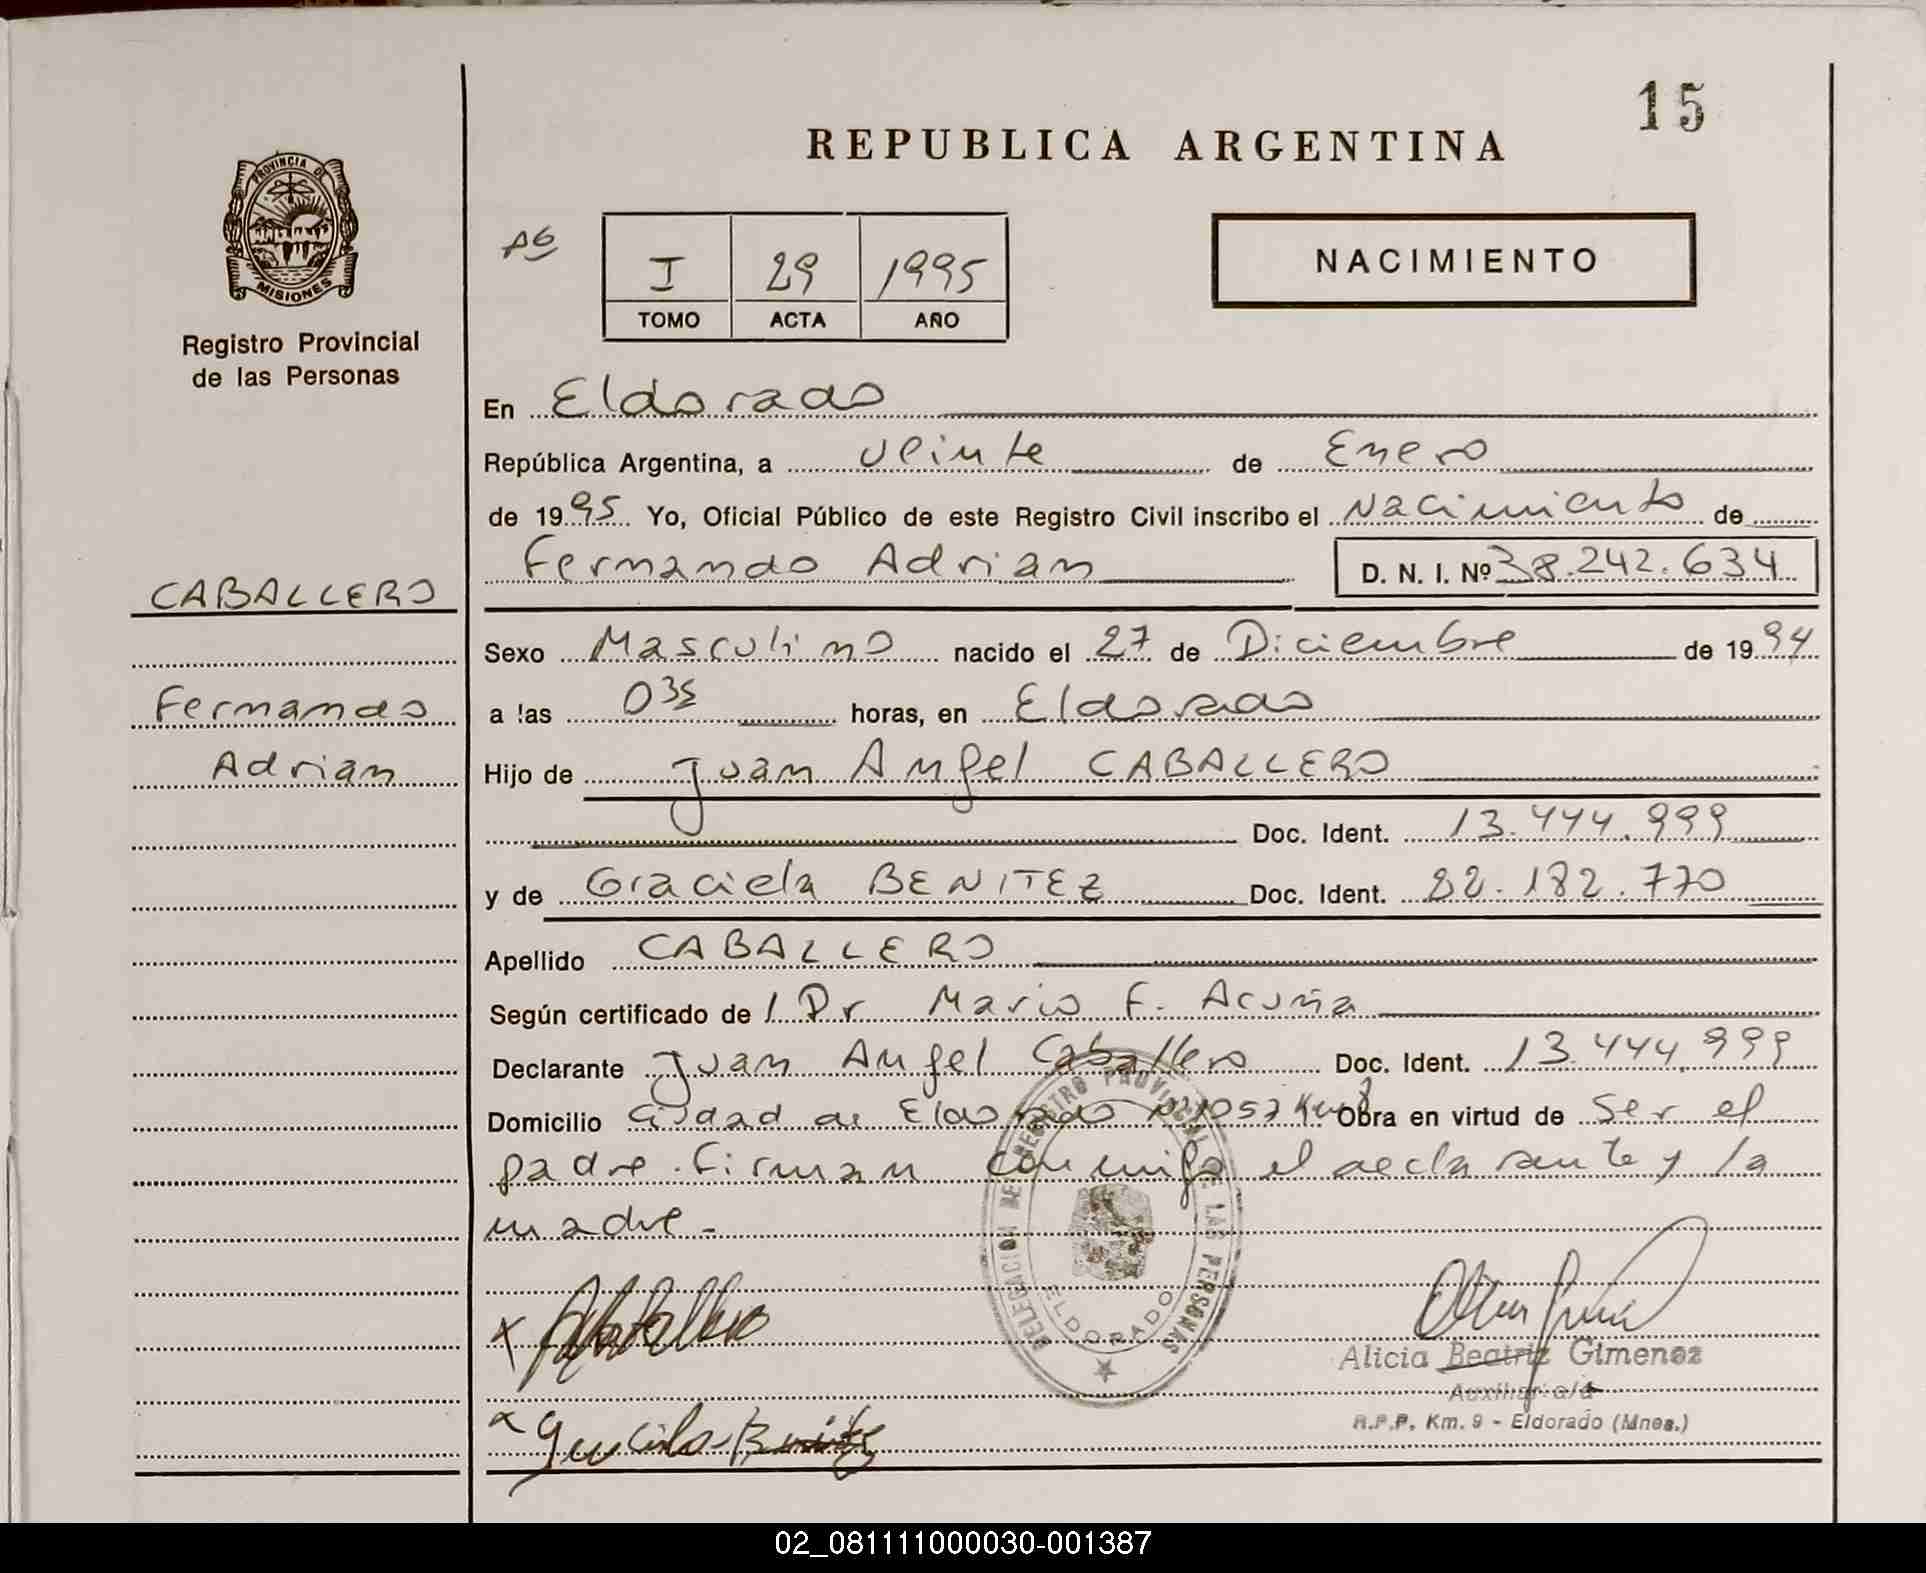 15
REPUBLICA ARGENTINA
PROVINCIA DE
MISIONES
Registro Provincial
de las Personas
AG
I 29 1995
TOMO ACTA AÑO
NACIMIENTO
En Eldorado
República Argentina, a veinte de Enero
de 1995 Yo, Oficial Público de este Registro Civil inscribo el Nacimiento de
Fernando Adrian D. N. I. Nº 38.242.634
CABALLERO
Fernando
Adrian
Sexo Masculino nacido el 27 de Diciembre de 1994
a las 03 horas, en Eldorado
Hijo de Juan Angel CABALLERO
Doc. Ident. 13.444.999
y de Graciela BENITEZ Doc. Ident. 22.182.770
Apellido CABALLERO
Según certificado de / Dr Mario F. Acuña
Declarante Juan Angel Caballero Doc. Ident. 13.444.999
Domicilio Ciudad de Eldorado Obra en virtud de ser el
padre. Firman conmigo el declarante y la
madre -
DELEGACION DEL REGISTRO PROVINCIAL DE LAS PERSONAS
ELDORADO
x
x Graciela Benitez
Alicia Beatriz Gimenez
Auxiliar a/c
R.P.P. Km. 9 - Eldorado (Mnes.)
02_081111000030-001387